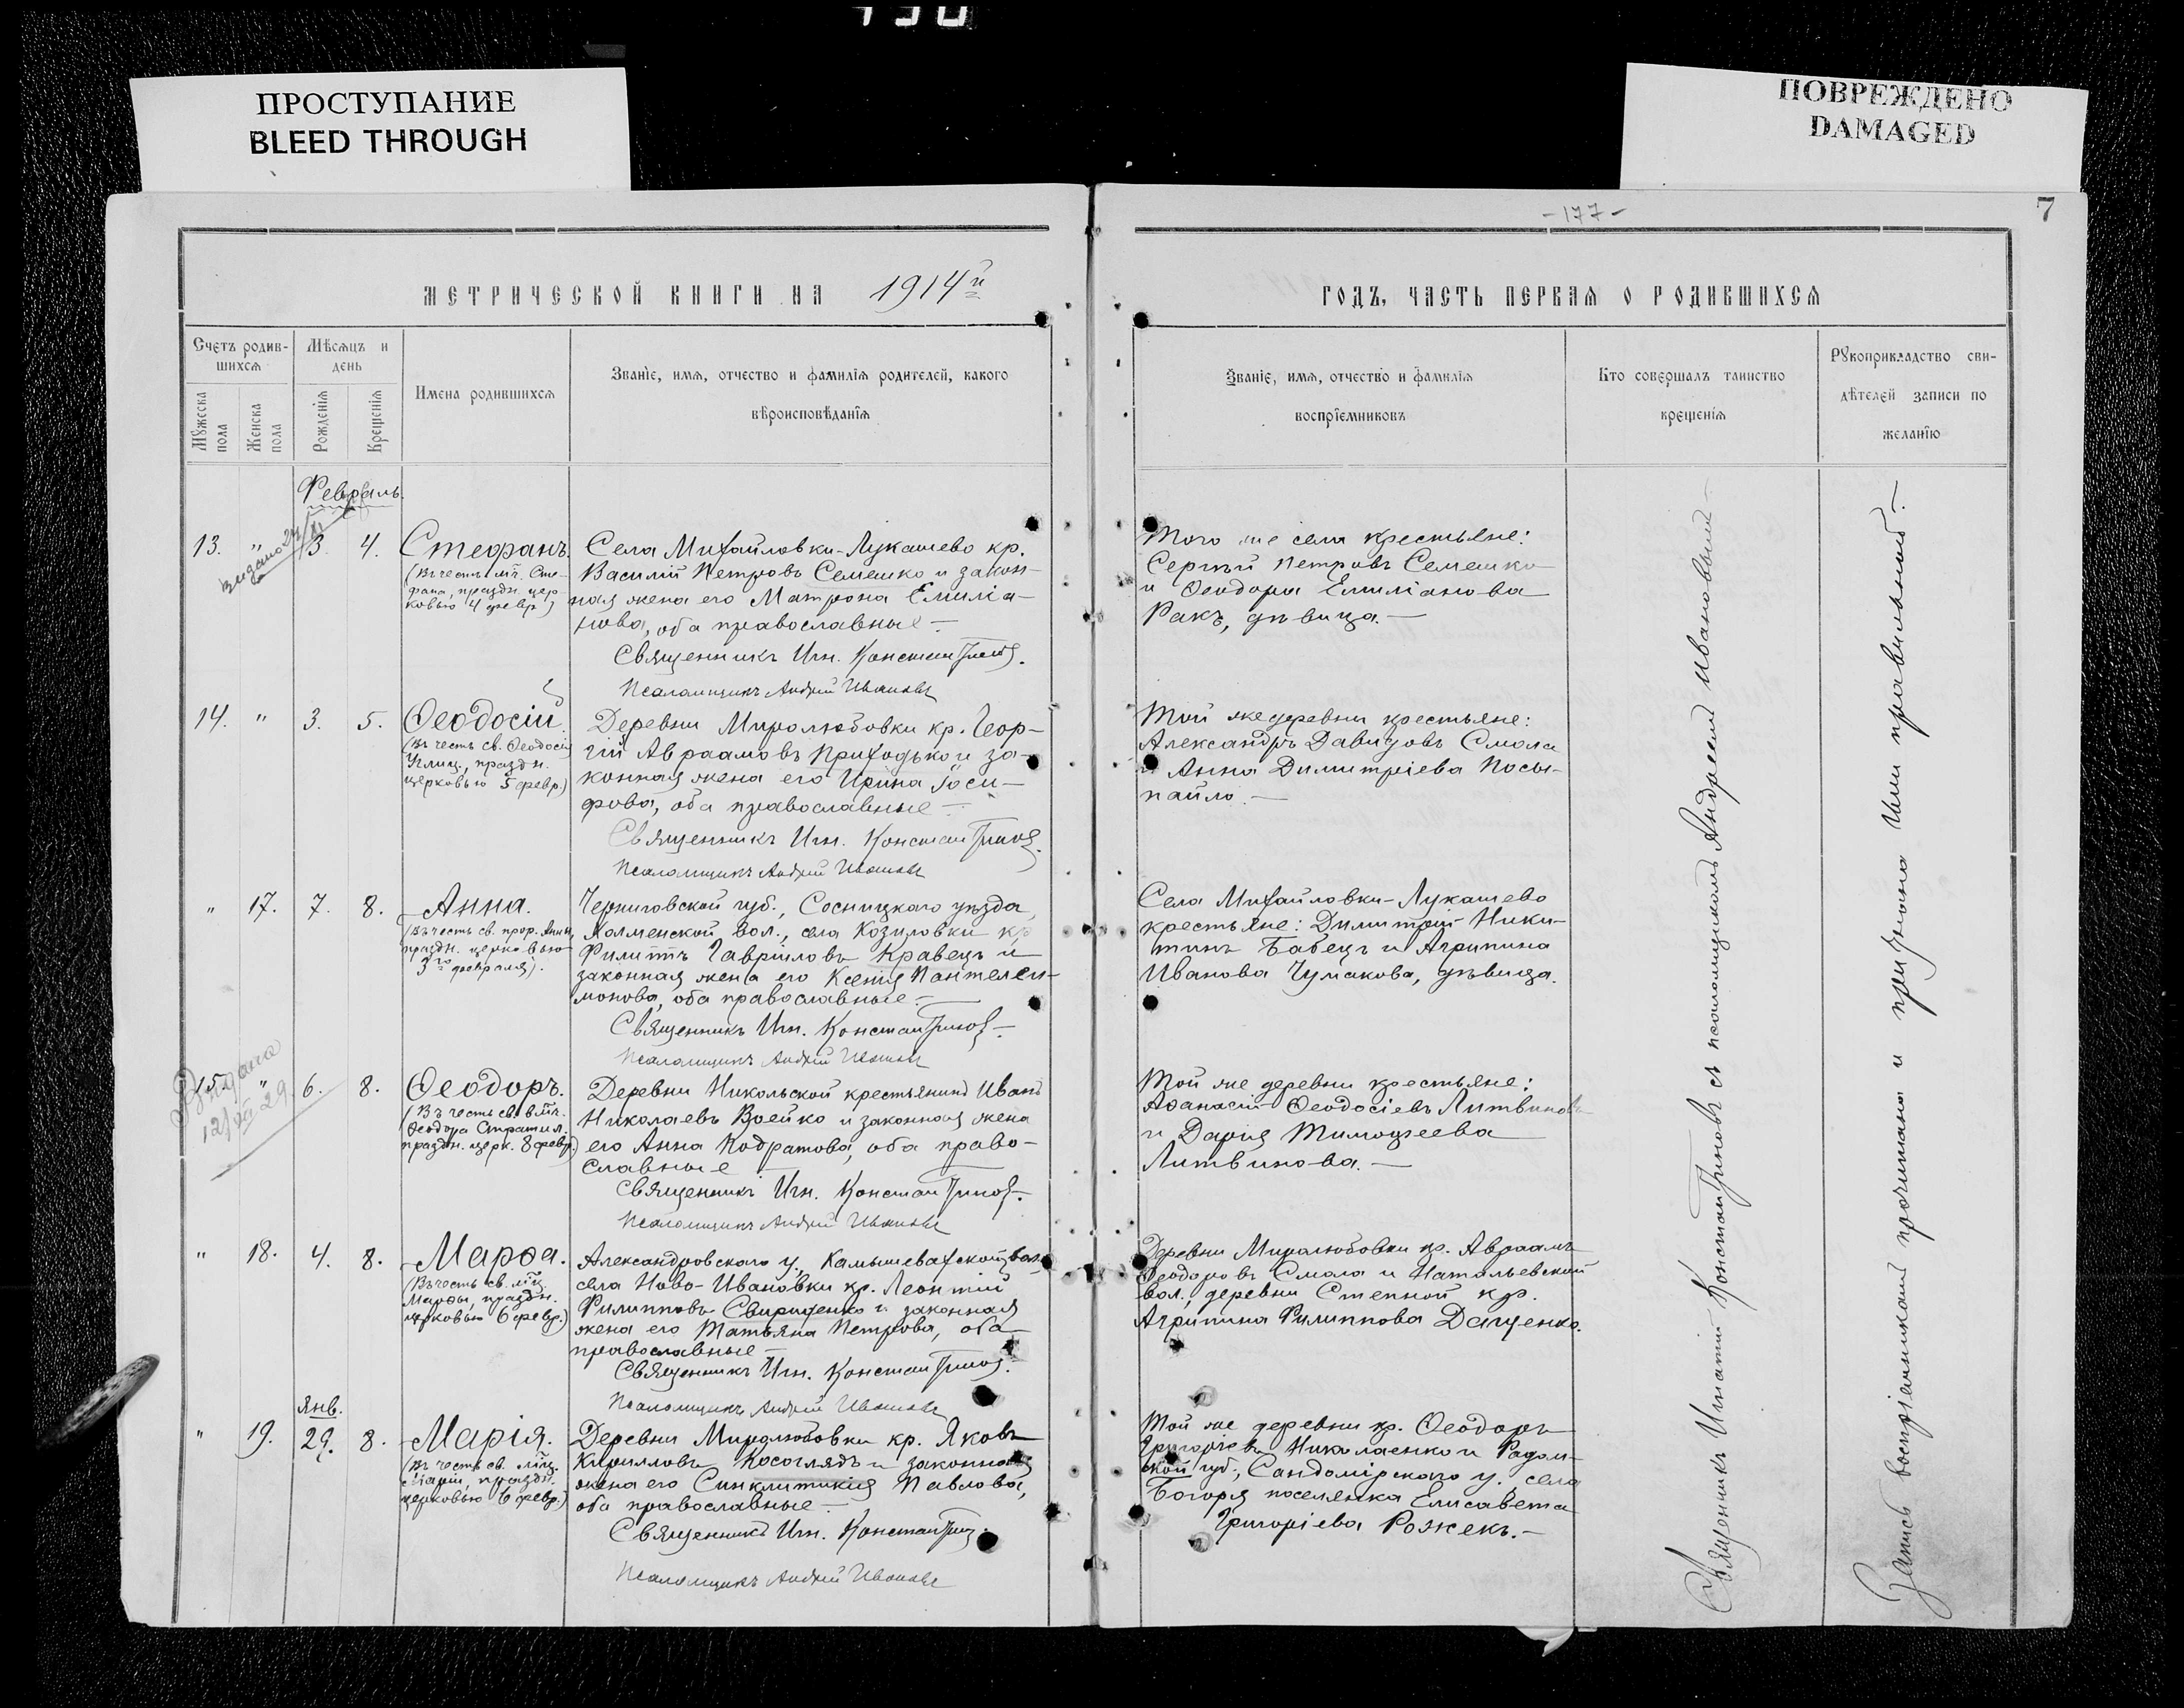 ПРОСТУПАНИЕ
BLEED THROUGH
ПОВРЕЖДЕНО
DAMAGED
-177-
7
МЕТРИЧЕСКОЙ КНИГИ НА 1914й
ГОДЪ, ЧАСТЬ ПЕРВАЯ О РОДИВШИХСЯ
Счетъ родив-
шихся
Мѣсяцъ и
день
Мужеска пола
Женска пола
Рожденія
Крещенія
Имена родившихся
Званіе, имя, отчество и фамилія родителей, какого
вѣроисповѣданія
Званіе, имя, отчество и фамилія
воспріемниковъ
Кто совершалъ таинство
крещенія
Рукоприкладство сви-
дѣтелей записи по
желанію
Февраль.
13. " 3. 4. Стефанъ.
(Въ честь мч. Сте-
фана, праздн. цер-
ковью 4 февр.)
Села Михайловки-Лукашево кр.
Василій Петровъ Семешко и закон-
ная жена его Матрона Емилiа-
нова, оба православные.-
Священникъ Игн. Константиновъ.
Псаломщикъ Андрей Ивановъ
Того же села крестьяне:
Сергѣй Петровъ Семешко
и Ѳеодора Емиліанова
Ракъ, дѣвица.-
14. " 3. 5. Ѳеодосій.
(Въ честь св. Ѳеодосія
Углиц., праздн.
церковью 5 февр.)
Деревни Миролюбовки кр. Геор-
гій Авраамовъ Приходько и за-
конная жена его Ирина Іоси-
фова, оба православные.-
Священникъ Игн. Константиновъ.
Псаломщикъ Андрей Ивановъ
Той же деревни крестьяне:
Александръ Давидовъ Смола
и Анна Димитріева Посы-
пайло.-
" 17. 7. 8. Анна.
(Въ честь св. прор. Анны,
праздн. церковью
3го февраля).
Черниговской губ., Сосницкаго уѣзда,
Холменской вол., села Козиловки кр.
Филиппъ Гавріиловъ Кравецъ и
законная жена его Ксенія Пантелеи-
монова, оба православные.-
Священникъ Игн. Константиновъ.-
Псаломщикъ Андрей Ивановъ
Села Михайловки-Лукашево
крестьяне: Димитрій Ники-
тинъ Бабецъ и Агрипина
Иванова Чумакова, дѣвица.
Выдана
15. " 6. 8. Ѳеодоръ.
(Въ честь св. вмч.
Ѳеодора Стратил.
праздн. церк. 8 февр.)
Деревни Никольской крестьянинъ Иванъ
Николаевъ Воейко и законная жена
его Анна Кодратова, оба право-
славные
Священникъ Игн. Константиновъ.
Псаломщикъ Андрей Ивановъ
Той же деревни крестьяне:
Аѳанасій Ѳеодосіевъ Литвиновъ
и Дарія Тимоѳеева
Литвинова.-
" 18. 4. 8. Марѳа.
(Въ честь св. мц.
Марѳы, праздн.
церковью 6 февр.)
Александровскаго у., Камышевахской вол.,
села Ново-Ивановки кр. Леонтій
Филипповъ Свириденко и законная
жена его Татьяна Петрова, оба
православные-
Священникъ Игн. Константиновъ.
Псаломщикъ Андрей Ивановъ
Деревни Миролюбовки кр. Авраамъ
Ѳеодоровъ Смола и Натальевской
вол., деревни Степной кр.
Агрипина Филиппова Даценко.
Янв.
" 19. 29. 8. Марія.
(Въ честь св. мц.
Маріи, праздн.
церковью 6 февр.)
Деревни Миролюбовки кр. Яковъ
Кирилловъ Косоглядъ и законная
жена его Синклитикія Павлова,
оба православные-
Священникъ Игн. Константинов.
Псаломщикъ Андрей Ивановъ
Той же деревни кр. Ѳеодоръ
Григоріевъ Николаенко и Радом-
ской губ., Сандомірскаго у. села
Богоря поселянка Елисавета
Григоріева Рожекъ.-
Священникъ Игнатій Константиновъ съ псаломщикомъ Андреемъ Ивановымъ-
Запись воспріемникамъ прочитана и признана ими правильной.-